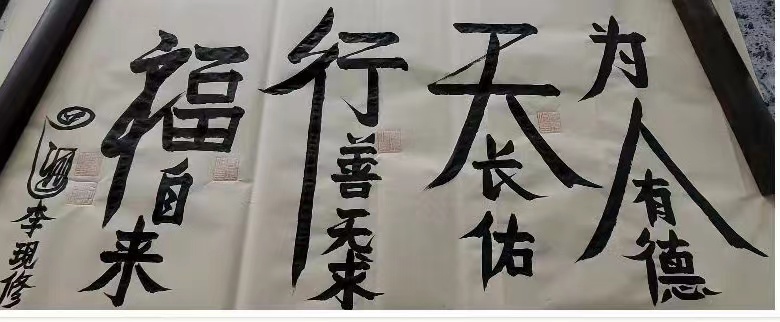 为人有德
天长佑
行善无求
福自来
李现修